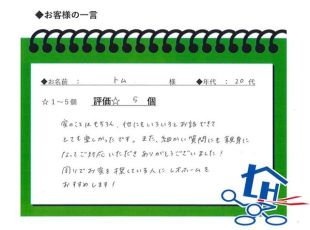 ◆お客様の一言
◆お名前 ： トム 様 ◆年代 ： 20 代
☆1～5個 評価☆ 5 個
家のことはもちろん、他にもいろいろとお話ができて
とても楽しかったです。また、細かい質問にも親身に
なってご対応いただきありがとうございました！
周りでお家を探している人にレオホームを
おすすめします！
LH